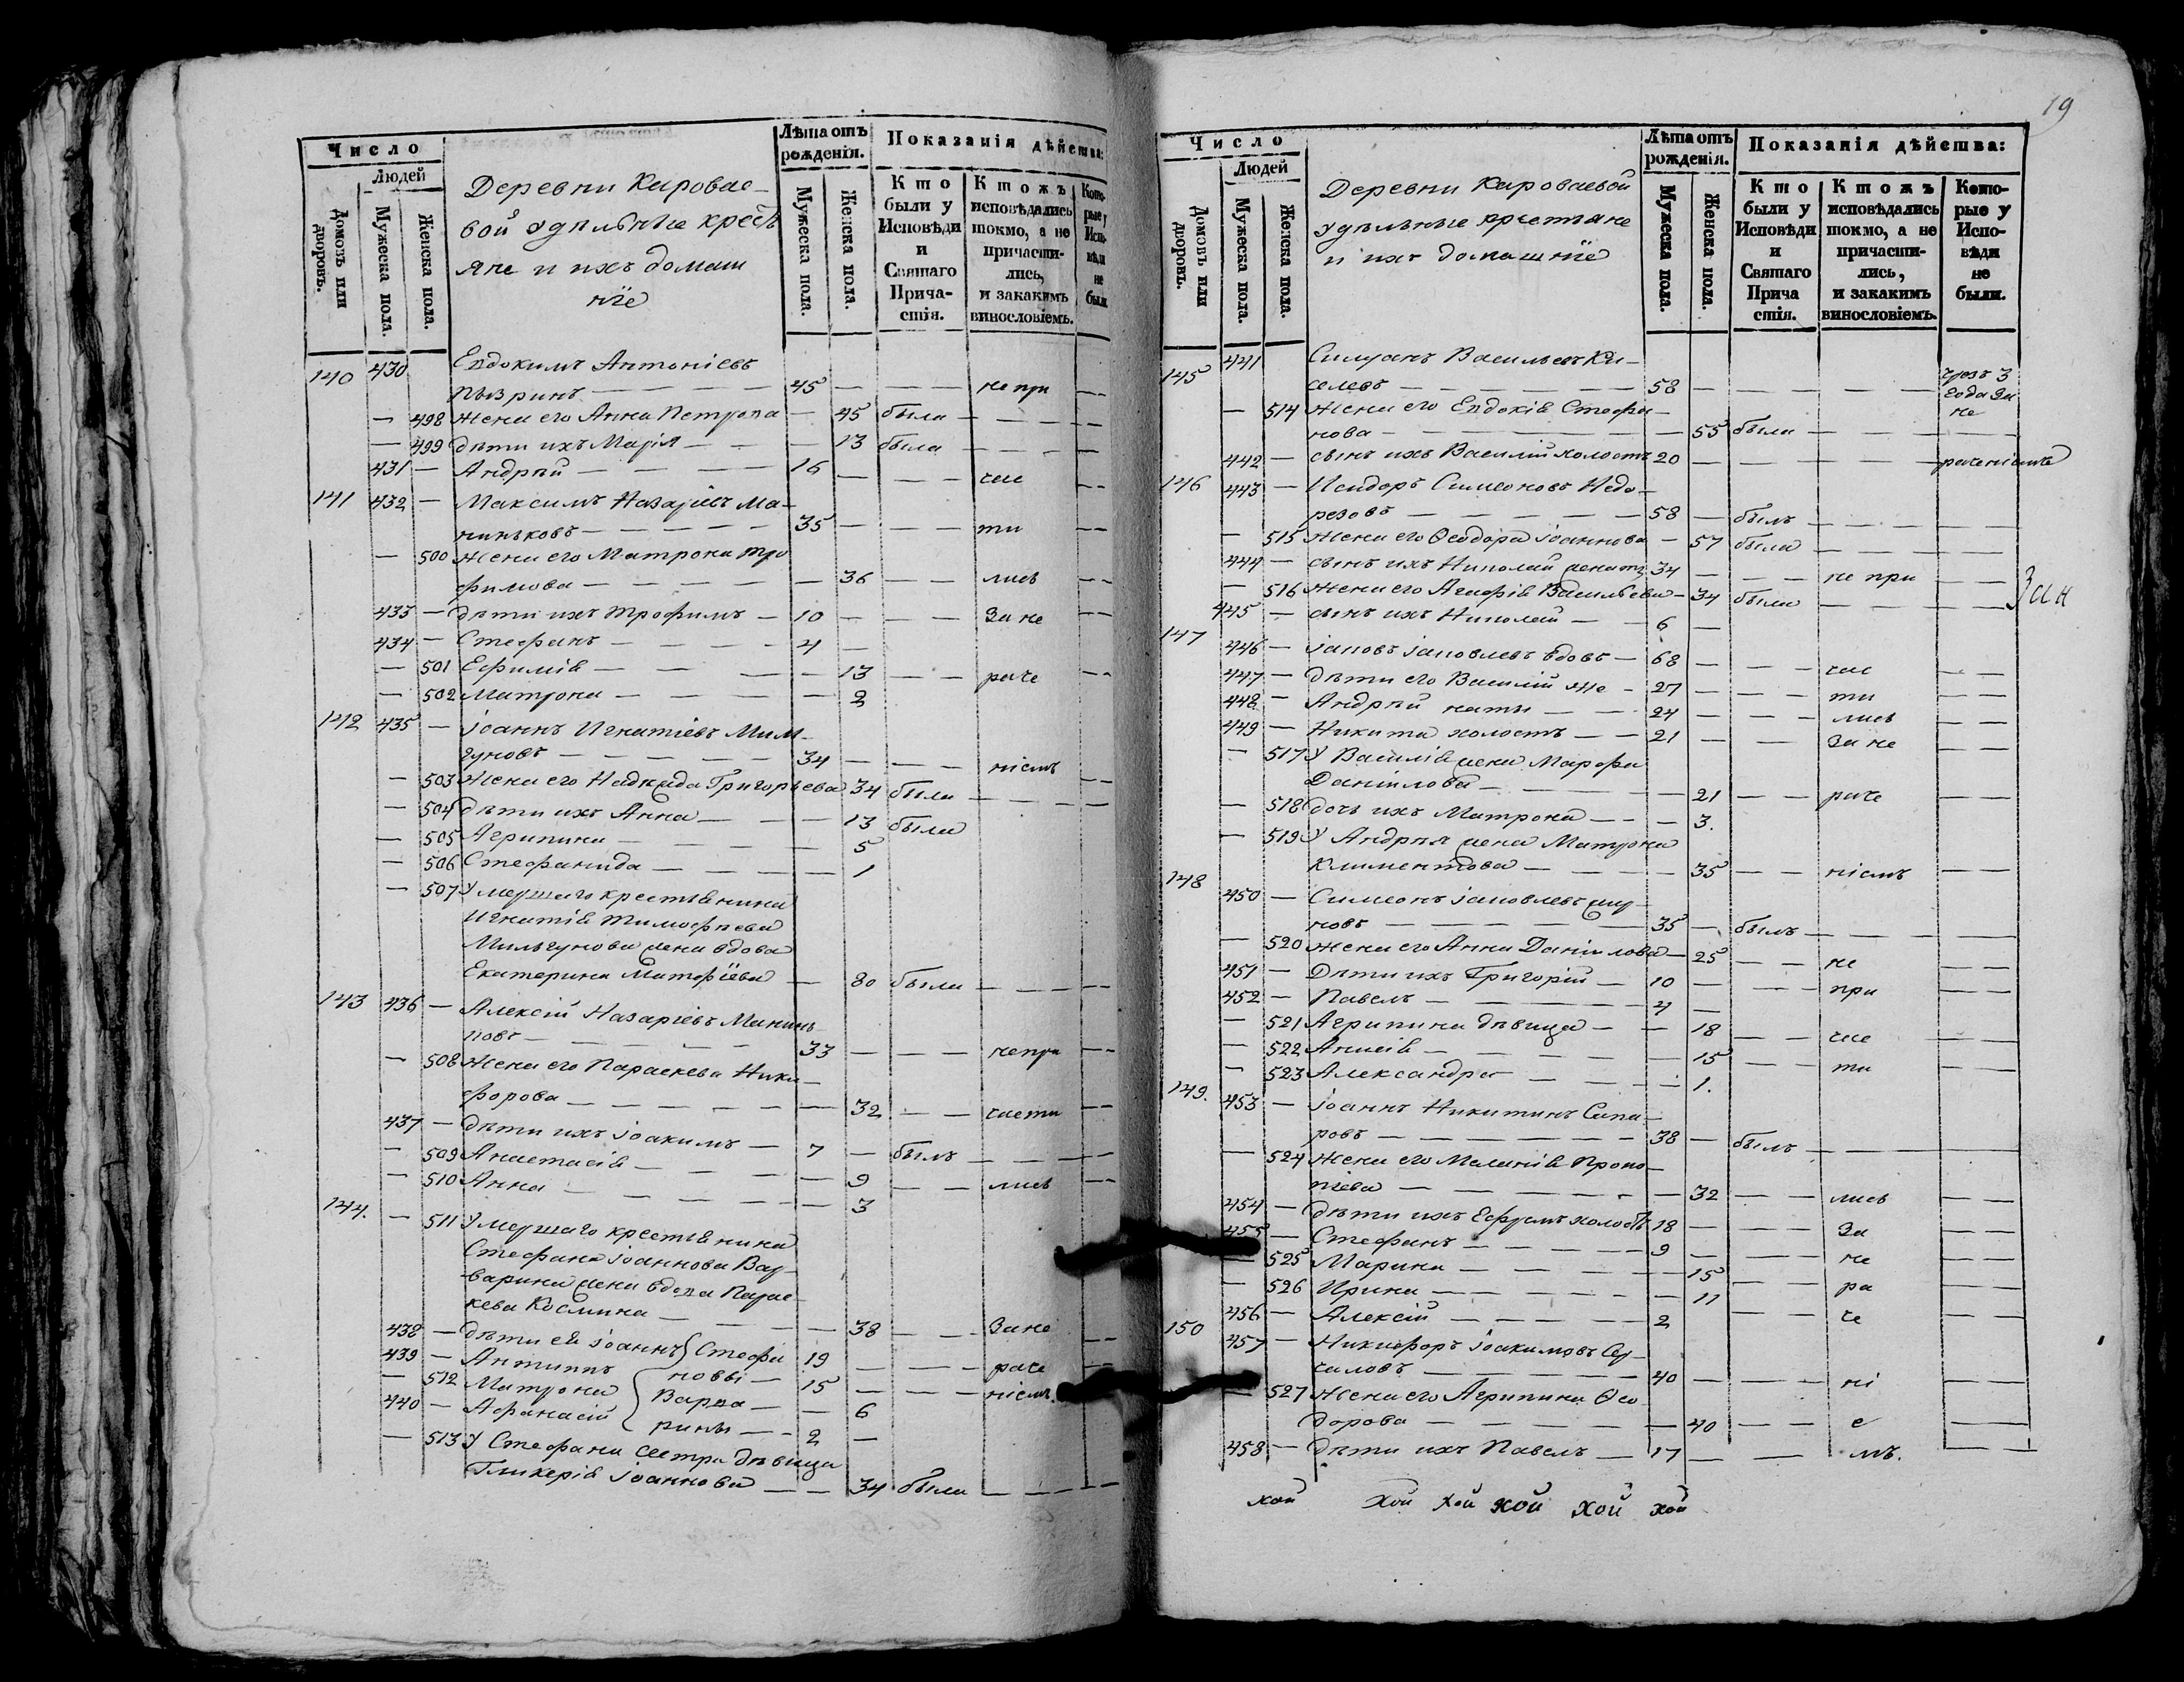 Число
Людей
Домовъ или дворовъ.
Мужеска пола.
Женска пола.
Деревни Караваe-
вой удѣльные кресть
яне и ихъ домаш
нїе
Лѣта отъ рожденія.
Мужеска пола.
Женска пола.
Показанія дѣйства:
Кто были у Исповѣди и Святаго Прича-стія.
Ктожъ исповѣдались токмо, а не причасти-лись, и закакимъ винословіемъ.
Кото-рые у Испо-вѣди не были
140 430 Евдокимъ Антоніевъ
45 — — — не при — —
— 498 жена его Анна Петрова — 45 была — — — —
— 499 дѣти ихъ Марія — — — 13 была — — — —
431 — Андрей — — — — 16 — — — час — —
141 432 — Максимъ Назаріевъ Ма-
ниньковъ — — — — — 35 — — — ти — —
— 500 жена его Матрона Тро
фимова — — — — — 36 — — лись — —
433 — дѣти ихъ Трофимъ — 10 — — — За не — —
434 — Стефанъ — — — — 4 —
— 501 Ефимія — — — — 13 — — раче — —
— 502 Матрона — — — — 2
142 435 — Іоаннъ Игнатіевъ Миль-
гуновъ — — — — — 34 — — — ніемъ — —
— 503 жена его Надежда Григорьева 34 была — — — —
— 504 дѣти ихъ Анна — — — — 13 была
— 505 Агрипина — — — — 5
— 506 Стефанида — — — — — 1
— 507 Умершаго крестьянина
Игнатія Тимофѣева
Мильгунова жена вдова
Екатерина Матфїева — 80 была — — — —
143 436 — Алексій Назаріевъ Манинь
ковъ — — — — — 33 — — — непри — —
— 508 жена его Параскева Ники-
форова — — — — — — 32 — — части — —
437 — дѣти ихъ Іоакимъ — 7 — былъ — — — —
— 509 Анастасія — — — — 9 — — лись — —
— 510 Анна — — — — — 3
144. — 511 Умершаго крестьянина
Стефана Іоаннова Вар-
варина жена вдова Парас
кева Космина — — — — 38 — — — Зане — —
438 — дѣти ея Іоаннъ } Стефа 19 — — — раче — —
439 — Антипъ новы — 15 — — — ніемъ.
— 512 Матрона {Варва — — 6
440 — Афанасій рины — — 2 —
— 513 У Стефана сестра дѣвица
Гликерія Іоаннова — — 34 была — — — —
19
Число
Людей
Домовъ или дворовъ.
Мужеска пола.
Женска пола.
Деревни Караваевой
удѣльные крестьяне
и ихъ домашнїе
Лѣта отъ рожденія.
Мужеска пола.
Женска пола.
Показанія дѣйства:
Кто были у Исповѣди и Святаго Прича стія.
Ктожъ исповѣдались токмо, а не причасти-лись, и закакимъ винословіемъ.
Кото-рые у Испо-вѣди не были.
145 441 Симеонъ Васильевъ Ки-
селевъ — — — — — — 58 — — — — чрезъ 3 года за не
— 514 жена его Евдокія Стефа-
нова — — — — — — — 55 была — — — —
442 — сынъ ихъ Василій холостъ 20 — — — — раченіемъ
146 443 — Исидоръ Симеоновъ Недо-
резовъ — — — — — 58 — былъ — — — —
— 515 жена его Ѳеодора Іоаннова — 57 была — — — —
444 — сынъ ихъ Николай женатъ 34 — — — не при — —
— 516 жена его Агафія Васильева — 34 была — — — — Зан
445 — сынъ ихъ Николай — — 6 —
147 446 — Іаковъ Іаковлевъ вдовъ — 68 — — — час — —
447 — дѣти его Василій же — 27 — — — ти — —
448 — Андрей наты — — 24 — — — лись — —
449 — Никита холостъ — — 21 — — За не — —
— 517 У Василія жена Марфа
Даніилова — — — — — 21 — — раче — —
— 518 дочь ихъ Матрона — — — 3.
— 519 У Андрея жена Матрона
Климентова — — — — 35 — — ніемъ — —
148 450 — Симеонъ Іаковлевъ
новъ — — — — — — 35 — былъ — — — —
— 520 жена его Анна Даніилова — 25 — — не — —
451 — Дѣти ихъ Григорій — 10 — — — при — —
452 — Павелъ — — — — 4 —
— 521 Агрипина дѣвица — — 18 — — час — —
— 522 Анисія — — — — — 15 — — ти — —
— 523 Александра — — — — 1.
149. 453 — Іоаннъ Никитинъ Сапа-
ровъ — — — — — — 38 — былъ — — — —
— 524 жена его Меланія Проко-
піева — — — — — — 32 — — лись — —
454 — дѣти ихъ Ефремъ холостъ 18 — — — За — —
455 — Стефанъ — — — — — 9 — — — не — —
— 525 Марина — — — — — 15 — — ра — —
— 526 Ирина — — — — — 11 — — че — —
456 — Алексій — — — — — 2
150 457 — Никифоръ Іоакимовъ Су-
чаловъ — — — — — 40 — — — ні — —
— 527 жена его Агрипина Ѳео
дорова — — — — — 40 — — е — —
458 — дѣти ихъ Павелъ — 17 — — мъ. — —
хой хой хой хой хой хой